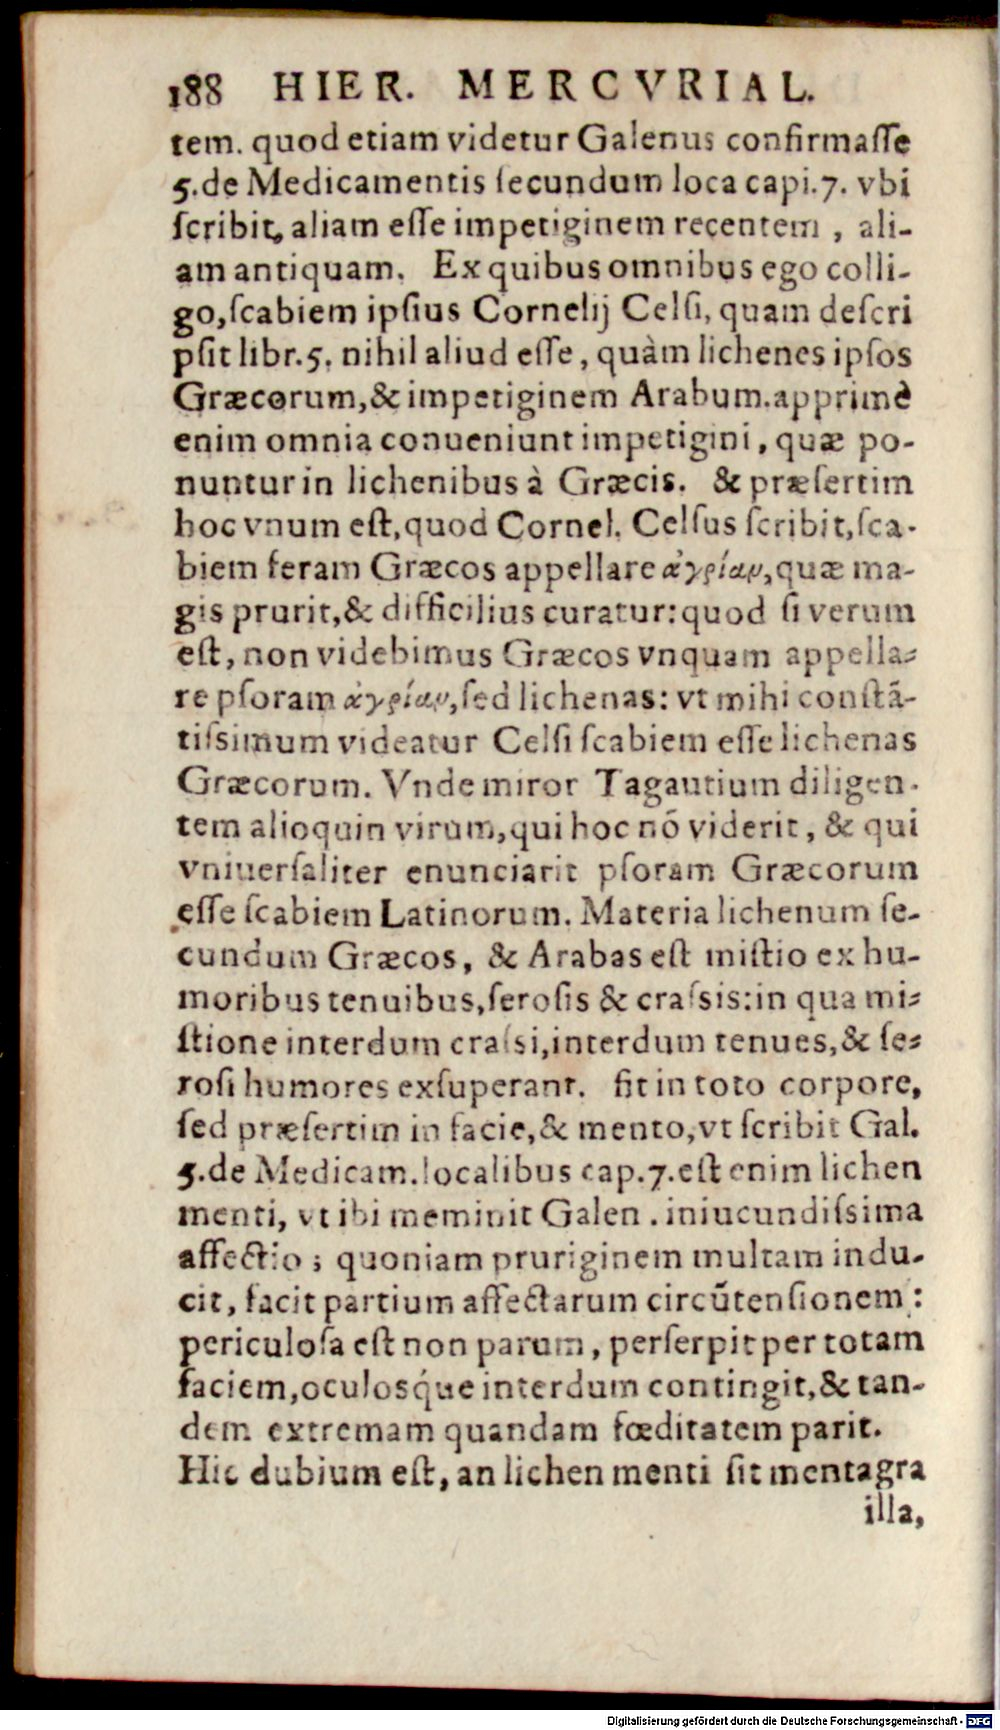 188 HIER. MERCVRIAL.
tem. quod etiam videtur Galenus confirmaſſe
5.de Medicamentis ſecundum loca capi.7. vbi
ſcribit, aliam eſſe impetiginem recentem , ali-
am antiquam. Ex quibus omnibus ego colli-
go,ſcabiem ipſius Cornelij Celſi, quam deſcri
pſit libr.5. nihil aliud eſſe, quàm lichenes ipſos
Græcorum,& impetiginem Arabum.apprimè
enim omnia conueniunt impetigini, quæ po-
nuntur in lichenibus à Græcis. & præſertim
hoc vnum eſt,quod Cornel. Celſus ſcribit,ſca-
biem feram Græcos appellare ἀγρίαν,quæ ma-
gis prurit,& difficilius curatur:quod ſi verum
eſt, non videbimus Græcos vnquam appella-
re pſoram ἀγρίαν,ſed lichenas: vt mihi conſtã-
tiſsimum videatur Celſi ſcabiem eſſe lichenas
Græcorum. Vnde miror Tagautium diligen-
tem alioquin virum,qui hoc nõ viderit, & qui
vniuerſaliter enunciarit pſoram Græcorum
eſſe ſcabiem Latinorum. Materia lichenum ſe-
cundum Græcos, & Arabas eſt miſtio ex hu-
moribus tenuibus,ſeroſis & craſsis:in qua mi-
ſtione interdum craſsi,interdum tenues,& ſe-
roſi humores exſuperant. fit in toto corpore,
ſed præſertim in facie,& mento,vt ſcribit Gal.
5.de Medicam.localibus cap.7.eſt enim lichen
menti, vt ibi meminit Galen . iniucundiſsima
affectio ; quoniam pruriginem multam indu-
cit, facit partium affectarum circũtenſionem :
periculoſa eſt non parum, perſerpit per totam
faciem,oculosq́ue interdum contingit,& tan-
dem extremam quandam fœditatem parit.
Hic dubium eſt, an lichen menti ſit mentagra
illa,
Digitalisierung gefördert durch die Deutsche Forschungsgemeinschaft - DFG